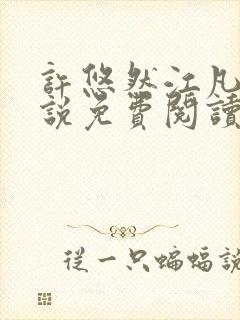 許悠然江凡
説免費閱讀
從一只蝙蝠說